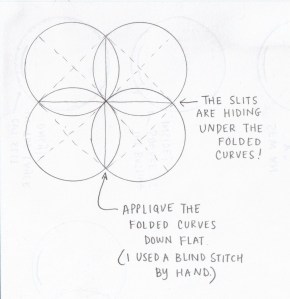 THE SLITS
ARE HIDING
UNDER THE
FOLDED
CURVES!
APPLIQUE THE
FOLDED CURVES
DOWN FLAT
(I USED A BLIND STITCH
BY HAND.)